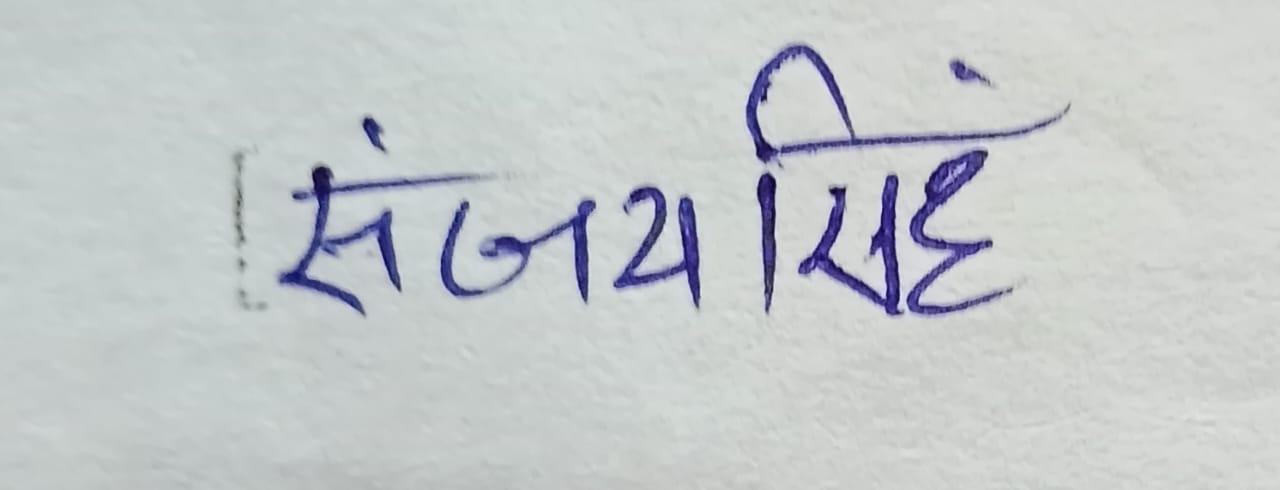 संजय सिहं